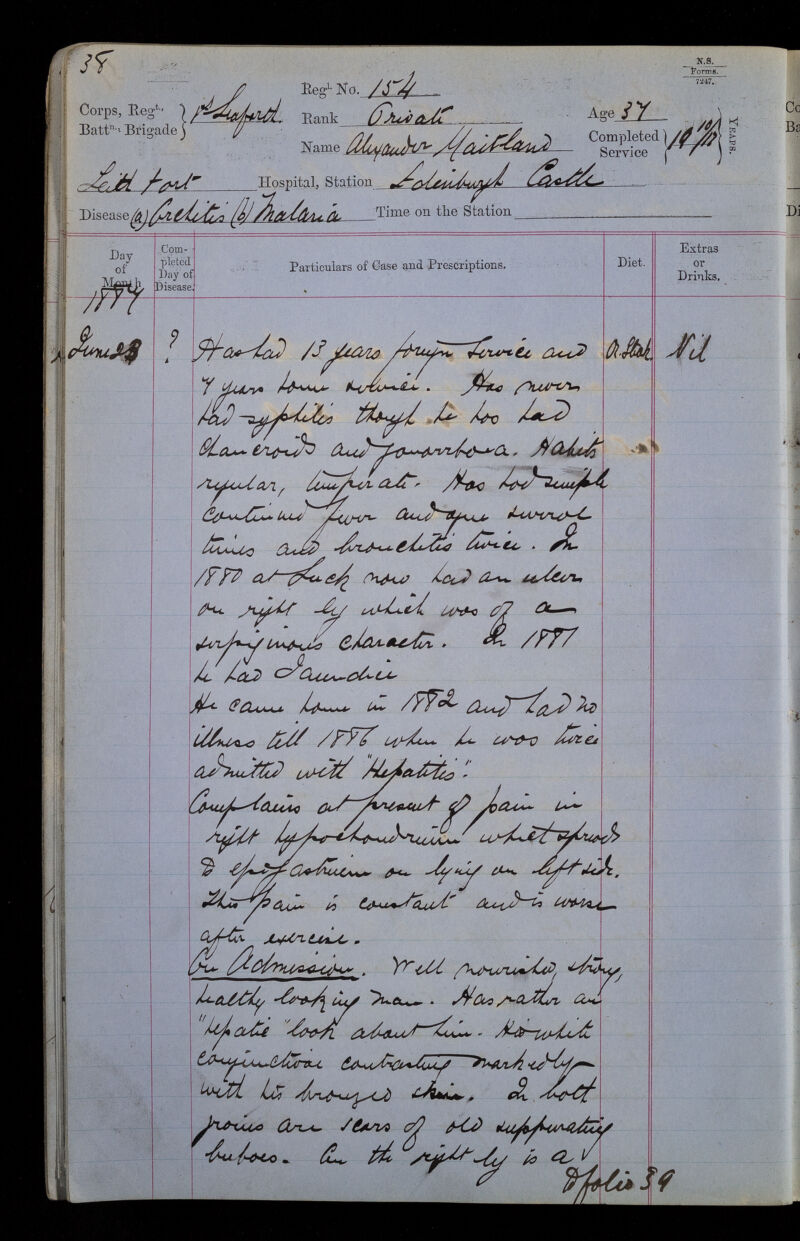 38
N.S.
Forms.
7247.
Corps, Regt., Battn., Brigade } 1st Seaforth Regl. No. 154
Rank Private Age 37
Name Alexander Maitland Completed Service } 19 10/12 { YEARS.
Leith Fort Hospital, Station Edinburgh Castle
Disease (a) Orchitis (b) Malaria Time on the Station
Day of Month
Completed Day of Disease.
Particulars of Case and Prescriptions.
Diet.
Extras or Drinks.
1887
June 28 ? Has had 13 years foreign Service and R. Steak Nil
7 years home service. Has never
had syphilis though he has had
Chancroids and gonorrhoea. Habits
regular, temperate. Has had simple
continued fever and ague several
times and bronchitis twice. In
1880 at had an ulcer
on right leg which was of a
serpiginous character. In 1881
he had Jaundice
He came home in 1882 and had no
illness till 1886 when he was twice
admitted with "Hepatitis".
Complains at present of pain in
right hypochondrium which spreads
to epigastrium on lying on left side.
This pain is constant and is worse
after exercise.
On Admission. Well nourished, strong,
healthy looking man. Has rather an
"hepatic" look about him. His white
conjunctivae contrasting markedly
with his bronzed skin. In both
groins are scars of old suppurating
buboes. On the right leg is a
To folio 39